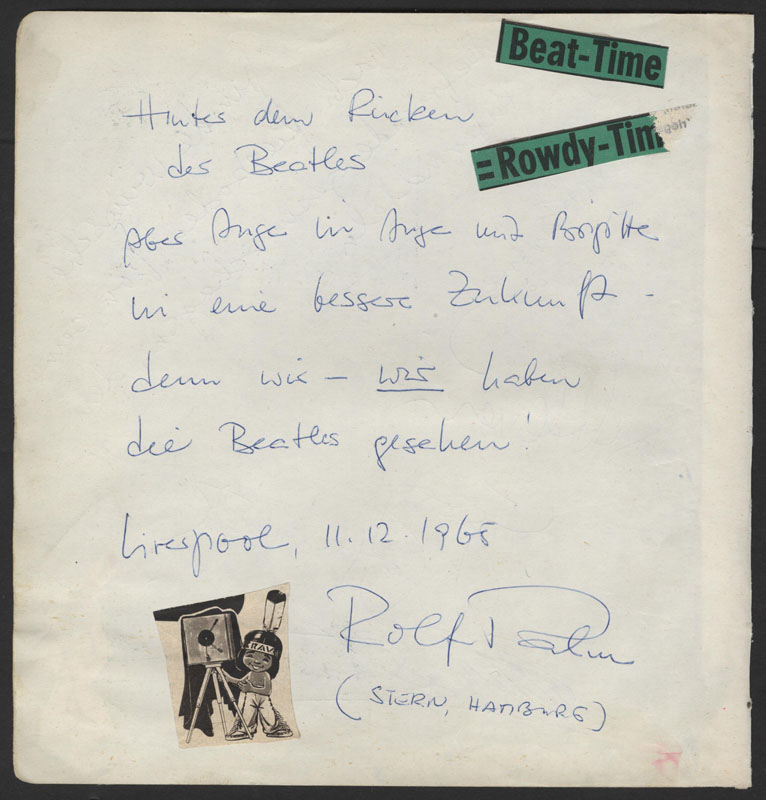 Beat-Time
=Rowdy-Tim
Hinter dem Rücken
der Beatles
Aber Auge in Auge mit Brigitte
in eine bessere Zukunft -
denn wir - wir haben
die Beatles gesehen!
Liverpool, 11.12.1965
BRAV
Rolf Palm
(STERN, HAMBURG)